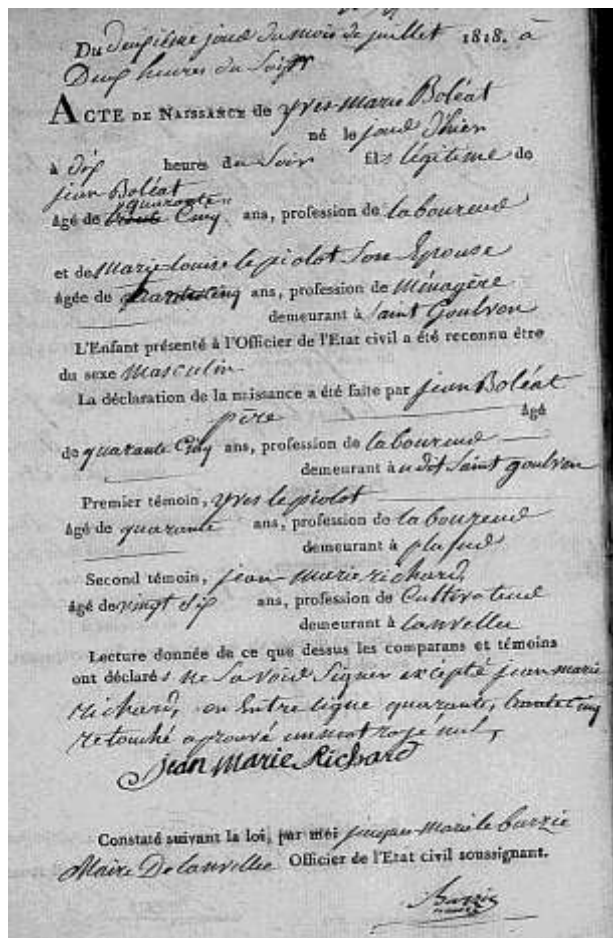 Du deuxième jour du mois de juillet 1818. à
Deux heures du Soir
ACTE DE NAISSANCE de yves marie Boléat
né le jour d'hier
à dix heures du Soir fils légitime de
jean Boléat
quarante
âgé de trente Cinq ans, profession de laboureur
et de Marie louise le piolot Son Epouse
âgée de ans, profession de Ménagère
demeurant à Saint Goulvon
L'Enfant présenté à l'Officier de l'Etat civil a été reconnu être
du sexe Masculin
La déclaration de la naissance a été faite par jean Boléat
père âgé
de quarante Cinq ans, profession de laboureur
demeurant à u dit Saint goulvon
Premier témoin, yves le piolot
âgé de quarante ans, profession de laboureur
demeurant à
Second témoin, jean marie richard,
âgé de vingt six ans, profession de Cultivateur
demeurant à lanvellec
Lecture donnée de ce que dessus les comparans et témoins
ont déclarés ne Savoir Signer excepté jean marie
richard, en Entre ligne quarante, trente Cinq
retouché aprouvé un mot rayé nul,
jean marie Richard
Constaté suivant la loi, par moi jacques marie le barzic
Maire De lanvellec Officier de l'Etat civil soussignant.
Barzic